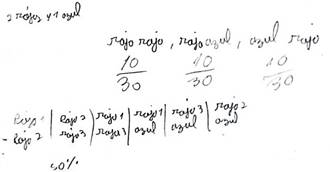 2 rojos y 1 azul
rojo rojo, rojo azul, azul rojo
10 10 10
30 30 30
Rojo 1 | Rojo 2 | rojo 1 | rojo 1 | rojo 3 | rojo 2
- Rojo 2 | rojo 3 | rojo 3 | azul | azul | azul
50%